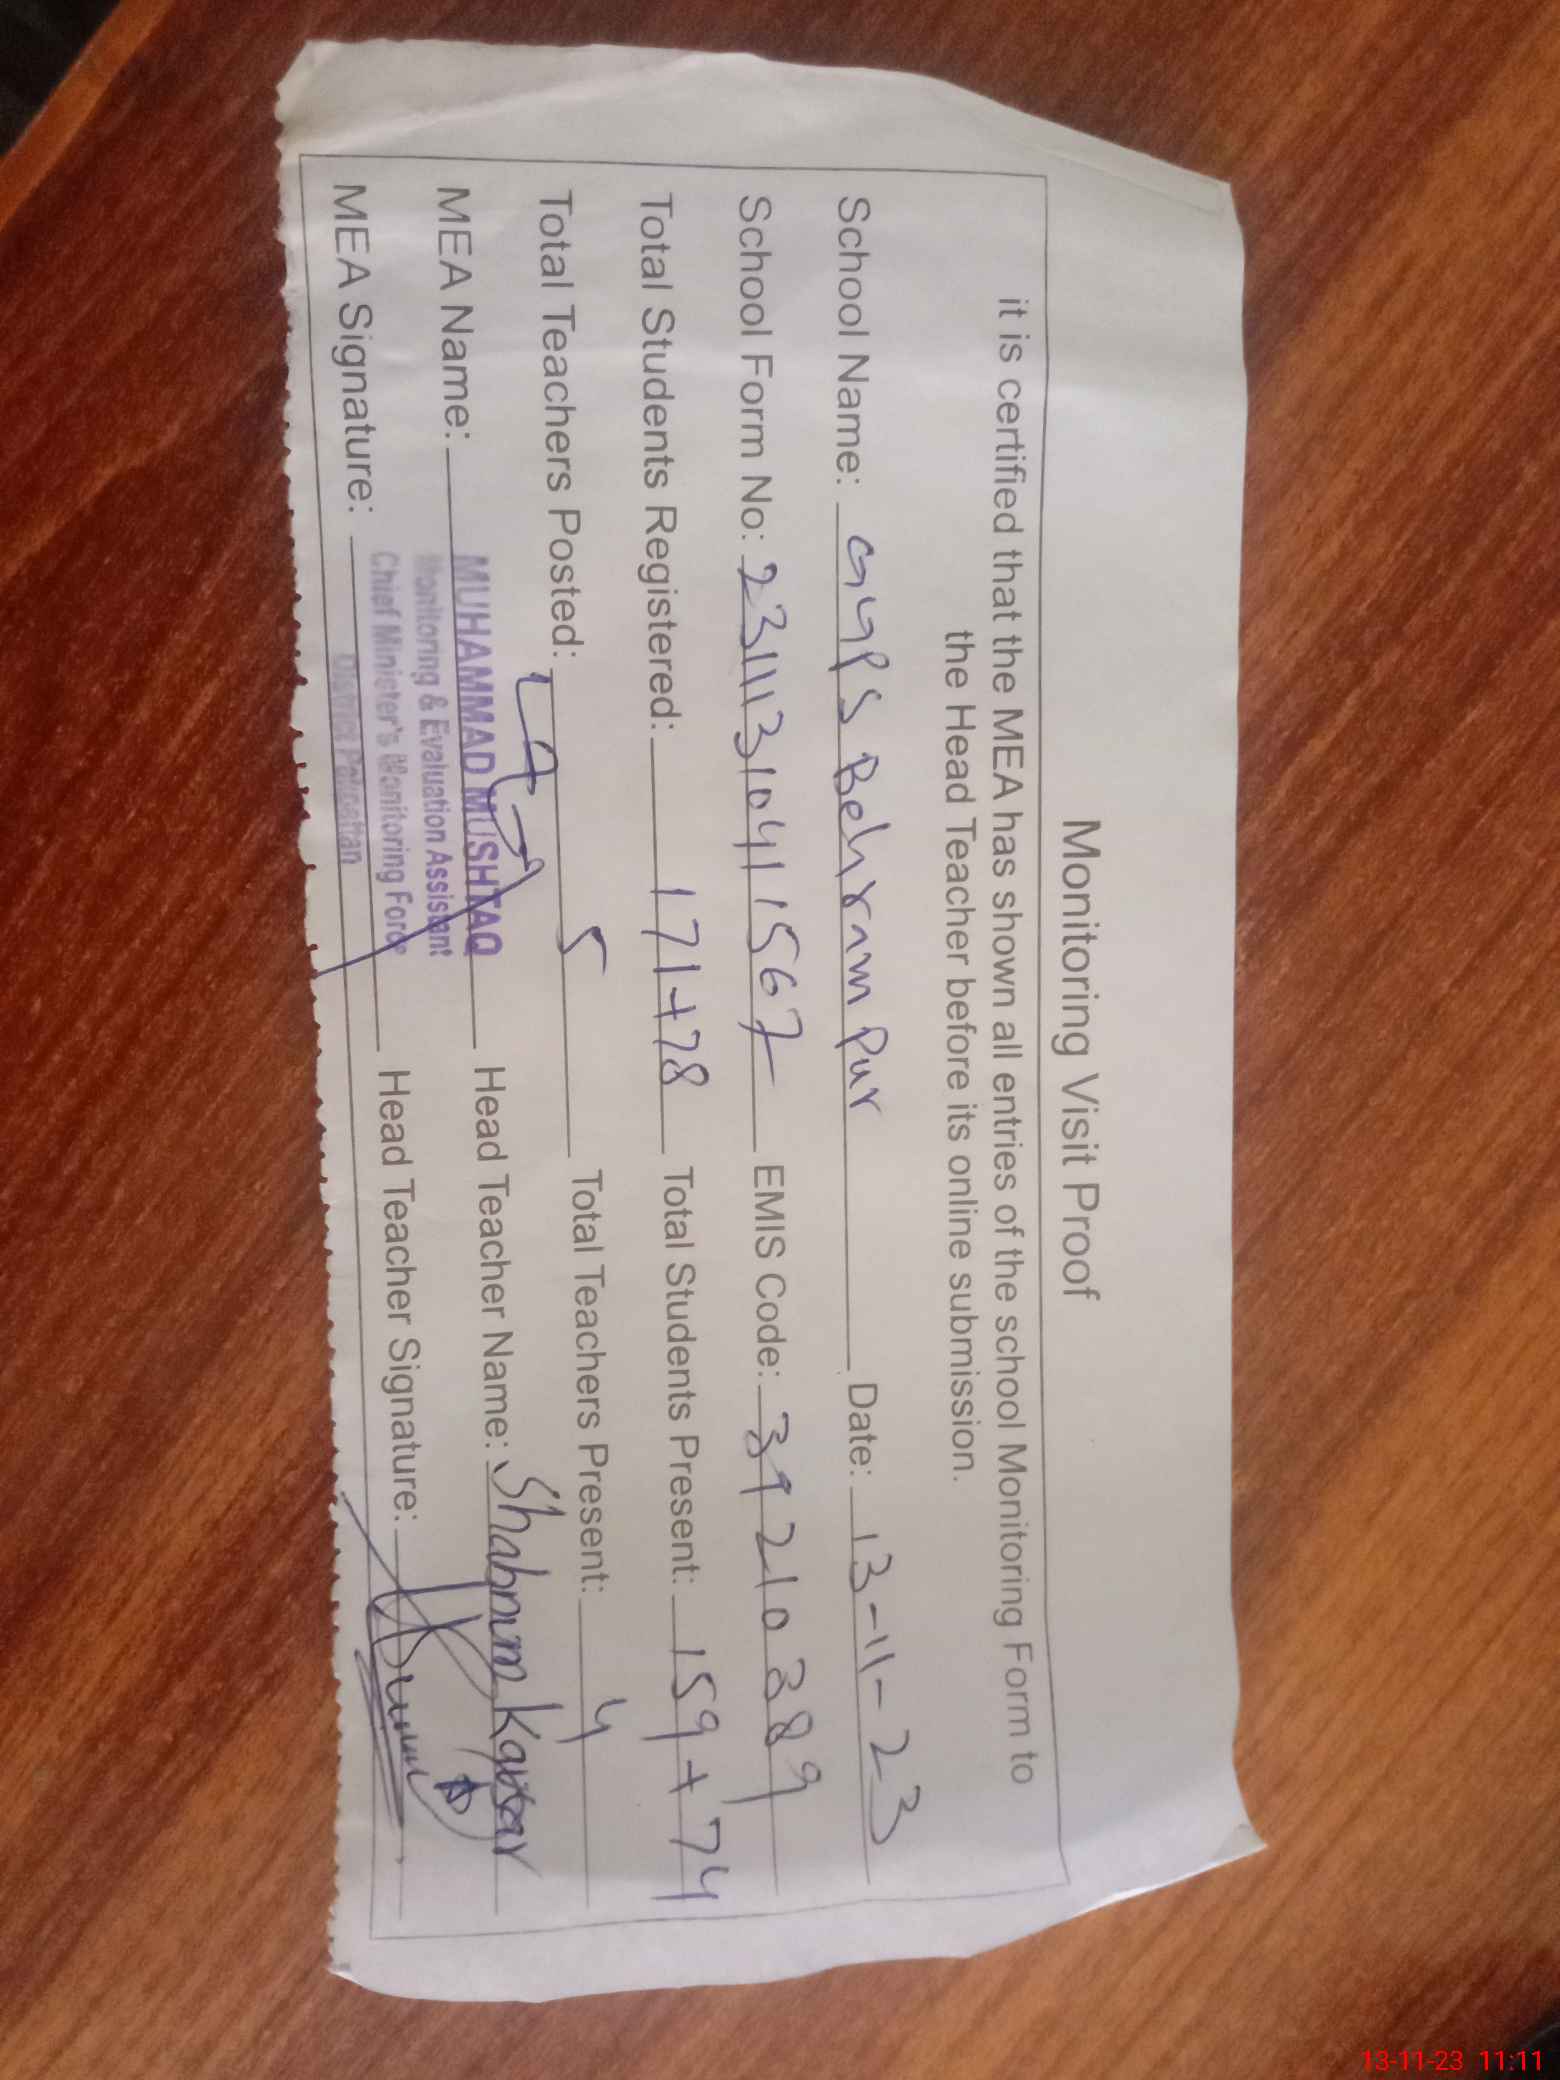 Monitoring Visit Proof
it is certified that the MEA has shown all entries of the school Monitoring Form to
the Head Teacher before its online submission.
School Name: GGPS Behram Pur Date: 13-11-23
School Form No: 23111310411567 EMIS Code: 39210389
Total Students Registered: 171+78 Total Students Present: 159+74
Total Teachers Posted: 5 Total Teachers Present: 4
MEA Name: MUHAMMAD MUSHTAQ Head Teacher Name: Shabnum Kausar
Monitoring & Evaluation Assistant
Chief Minister's Monitoring Force
District Pakpattan
MEA Signature: Head Teacher Signature:
13-11-23 11:11